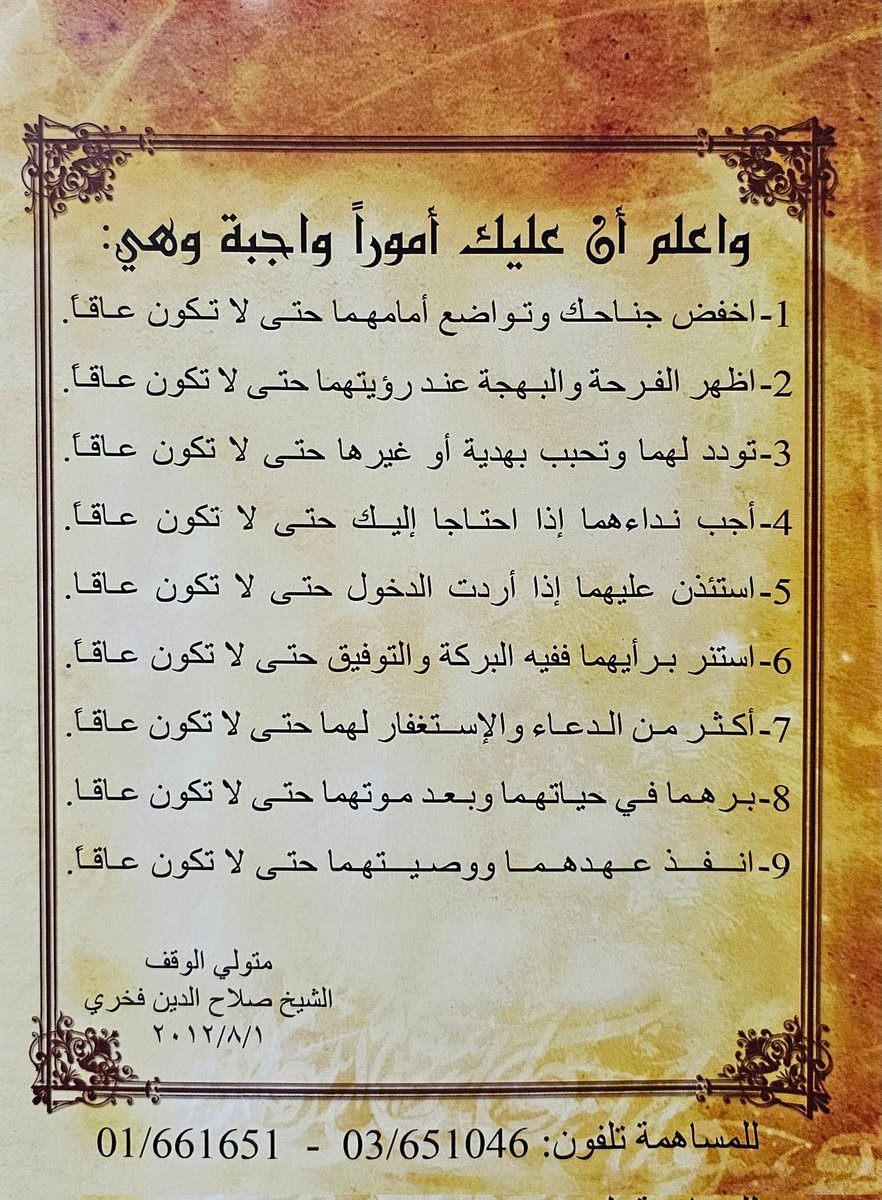 واعلم أن عليك أموراً واجبة وهي:
1-اخفض جناحك وتواضع أمامهما حتى لا تكون عاقاً.
2-اظهر الفرحة والبهجة عند رؤيتهما حتى لا تكون عاقاً.
3-تودد لهما وتحبب بهدية أو غيرها حتى لا تكون عاقاً.
4-أجب نداءهما إذا احتاجا إليك حتى لا تكون عاقاً.
5-استئذن عليهما إذا أردت الدخول حتى لا تكون عاقا.
6-استنر برأيهما ففيه البركة والتوفيق حتى لا تكون عاقاً.
7-أكثر من الدعاء والإستغفار لهما حتى لا تكون عاقاً.
8-برهما في حياتهما وبعد موتهما حتى لا تكون عاقا.
9-انفذ عهدهما ووصيتهما حتى لا تكون عاقاً.
متولي الوقف
الشيخ صلاح الدين فخري
٢٠١٢/٨/١
للمساهمة تلفون: 03/651046 - 01/661651